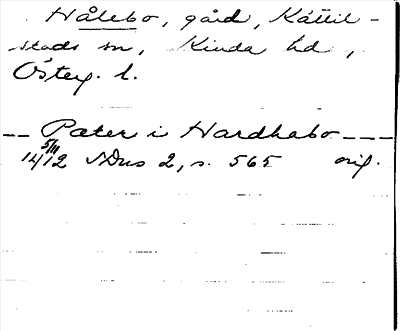 Hålebo, gård, Kättil-
stads sn, Kinda hd,
Österg. l.
-- Pater i Hardhabo ---
5/11 1412 SDns 2, s. 565 orig.